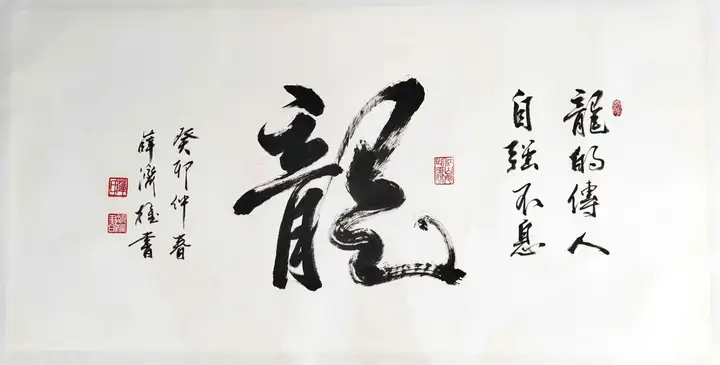 龍的傳人
自強不息
龍
癸卯仲春
薛濟權書